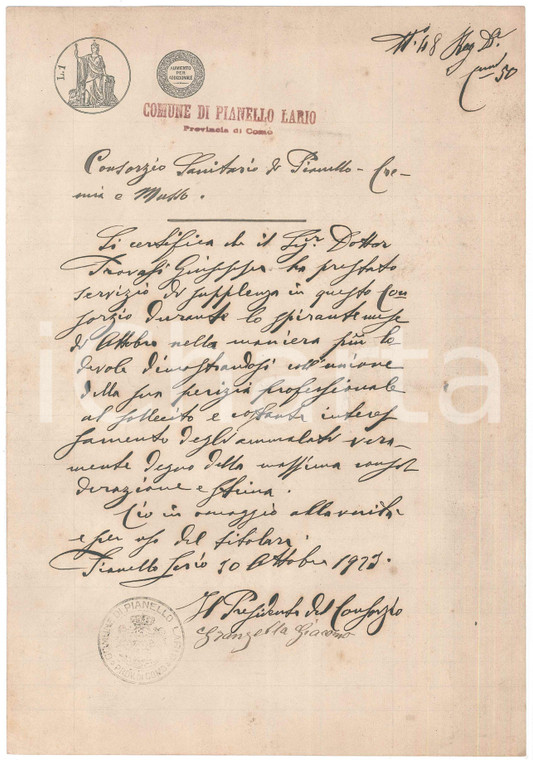 N. 48 Reg D.
Cent 50
L.1
AUMENTO
PER
ADDIZIONALE
COMUNE DI PIANELLO LARIO
Provincia di Como
Consorzio Sanitario di Pianello - Cre-
mia e Musso.
Si certifica che il Sigr. Dottor
Giuseppe ha prestato
servizio di supplenza in questo Con
sorzio durante lo spirante mese
di Ottobre nella maniera più lo
devole dimostrandosi coll'unione
della sua perizia professionale
al sollecito e costante interes
samento degli ammalati vera-
mente degno della massima consi
derazione e stima.
Ciò in omaggio alla verità
e per uso del titolare
Pianello Lario 30 Ottobre 1923.
Il Presidente del Consorzio
Giacomo
COMUNE DI PIANELLO LARIO
icharta